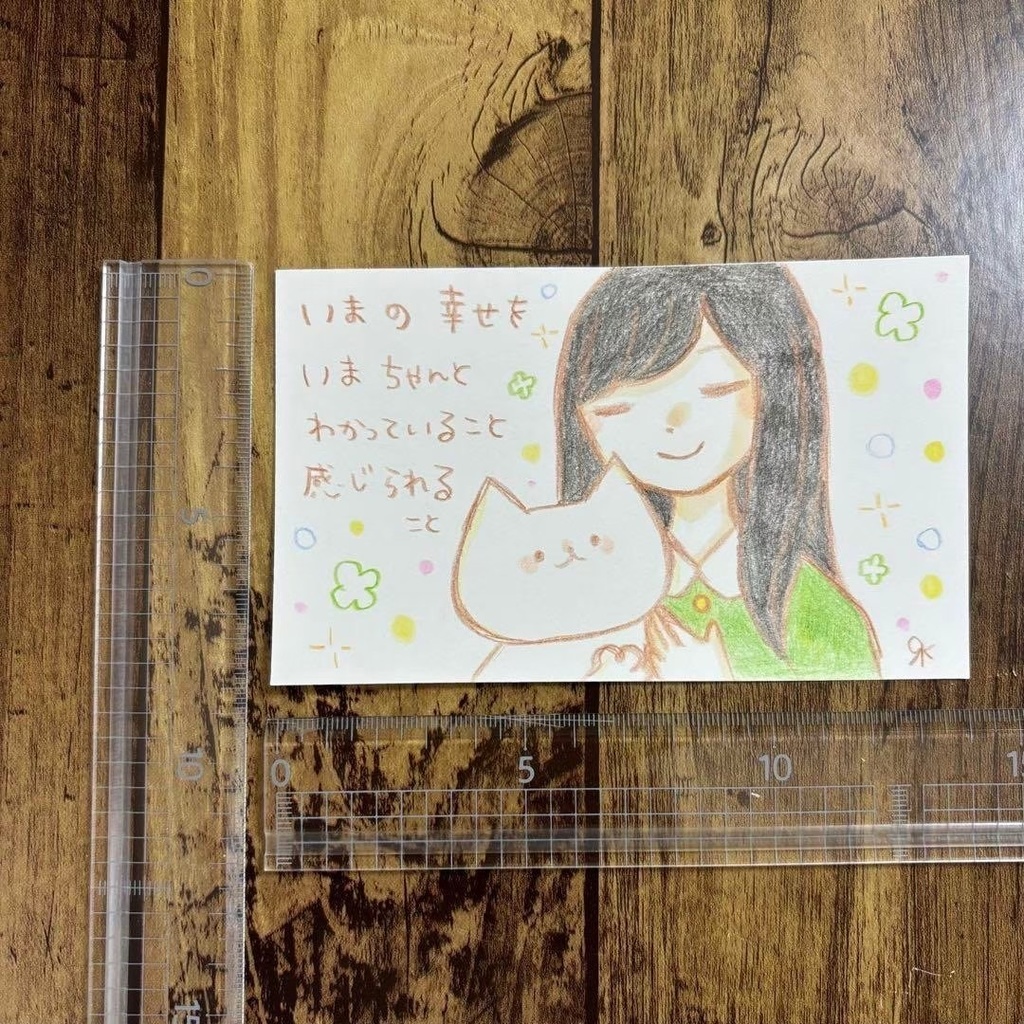 いまの 幸せを
いま ちゃんと
わかっていること
感じられる
こと
0
5
10
15
0
5
10